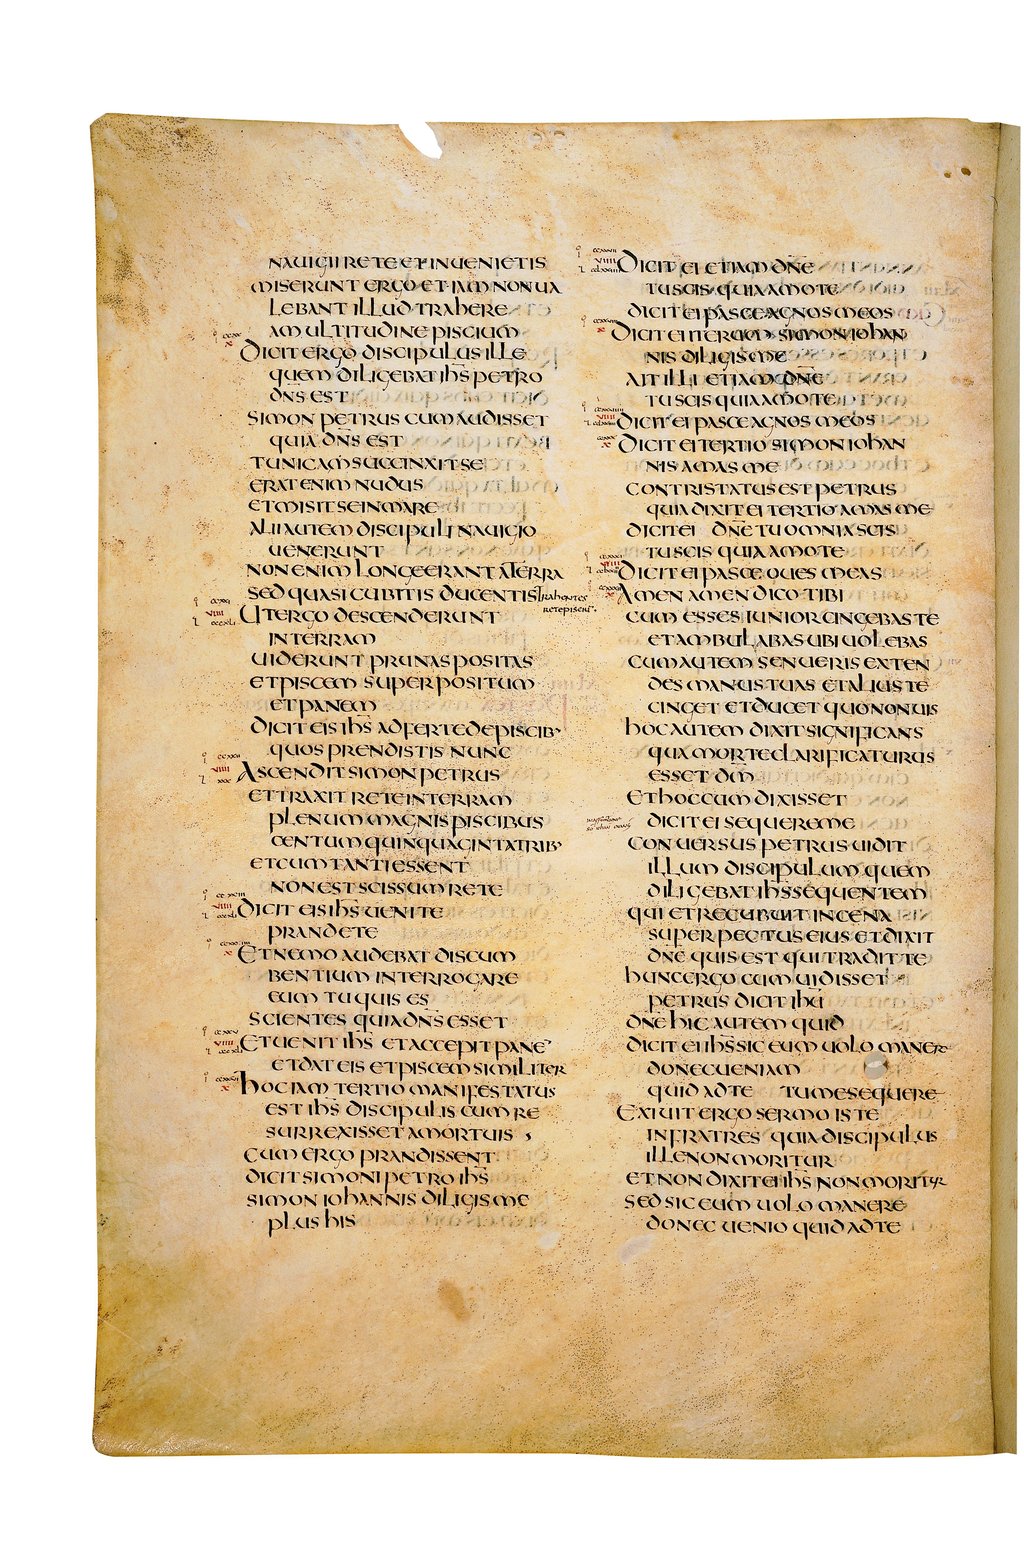 NAUIGII RETE ET INUENIETIS
MISERUNT ERGO ET IAM NON UA
LEBANT ILLUD TRAHERE
A MULTITUDINE PISCIUM
DICIT ERGO DISCIPULUS ILLE
QUEM DILIGEBAT IHS̄ PETRO
DN̄S EST
SIMON PETRUS CUM AUDISSET
QUIA DN̄S EST
TUNICAM SUCCINXIT SE
ERAT ENIM NUDUS
ET MISIT SE IN MARE
ALII AUTEM DISCIPULI NAUIGIO
UENERUNT
NON ENIM LONGE ERANT A TERRA
SED QUASI CUBITIS DUCENTIS trahentes
rete piscium
UT ERGO DESCENDERUNT
IN TERRAM
UIDERUNT PRUNAS POSITAS
ET PISCEM SUPERPOSITUM
ET PANEM
DICIT EIS IHS̄ ADFERTE DE PISCIB·
QUOS PRENDISTIS NUNC
ASCENDIT SIMON PETRUS
ET TRAXIT RETE IN TERRAM
PLENUM MAGNIS PISCIBUS
CENTUM QUINQUAGINTA TRIB·
ET CUM TANTI ESSENT
NON EST SCISSUM RETE
DICIT EIS IHS̄ UENITE
PRANDETE
ET NEMO AUDEBAT DISCUM
BENTIUM INTERROGARE
EUM TU QUIS ES
SCIENTES QUIA DN̄S ESSET
ET UENIT IHS̄ ET ACCEPIT PANE
ET DAT EIS ET PISCEM SIMILITER
HOC IAM TERTIO MANIFESTATUS
EST IHS̄ DISCIPULIS CUM RE
SURREXISSET A MORTUIS
CUM ERGO PRANDISSENT
DICIT SIMONI PETRO IHS̄
SIMON IOHANNIS DILIGIS ME
PLUS HIS
DICIT EI ETIAM DN̄E
TU SCIS QUIA AMO TE
DICIT EI PASCE AGNOS MEOS
DICIT EI ITERUM SIMON IOHAN
NIS DILIGIS ME
AIT ILLI ETIAM DN̄E
TU SCIS QUIA AMO TE
DICIT EI PASCE AGNOS MEOS
DICIT EI TERTIO SIMON IOHAN
NIS AMAS ME
CONTRISTATUS EST PETRUS
QUIA DIXIT EI TERTIO AMAS ME
DICIT EI DN̄E TU OMNIA SCIS
TU SCIS QUIA AMO TE
DICIT EI PASCE OUES MEAS
AMEN AMEN DICO TIBI
CUM ESSES IUNIOR CINGEBAS TE
ET AMBULABAS UBI UOLEBAS
CUM AUTEM SENUERIS EXTEN
DES MANUS TUAS ET ALIUS TE
CINGET ET DUCET QUO NON UIS
HOC AUTEM DIXIT SIGNIFICANS
QUA MORTE CLARIFICATURUS
ESSET DM̄
ET HOC CUM DIXISSET
DICIT EI SEQUERE ME
CONUERSUS PETRUS UIDIT
ILLUM DISCIPULUM QUEM
DILIGEBAT IHS̄ SEQUENTEM
QUI ET RECUBUIT IN CENA
SUPER PECTUS EIUS ET DIXIT
DN̄E QUIS EST QUI TRADIT TE
HUNC ERGO CUM UIDISSET
PETRUS DICIT IHŪ
DN̄E HIC AUTEM QUID
DICIT EI IHS̄ SIC EUM UOLO MANERE
DONEC UENIAM
QUID AD TE TU ME SEQUERE
EXIUIT ERGO SERMO ISTE
IN FRATRES QUIA DISCIPULUS
ILLE NON MORITUR
ET NON DIXIT EI IHS̄ NON MORITUR
SED SIC EUM UOLO MANERE
DONEC UENIO QUID AD TE